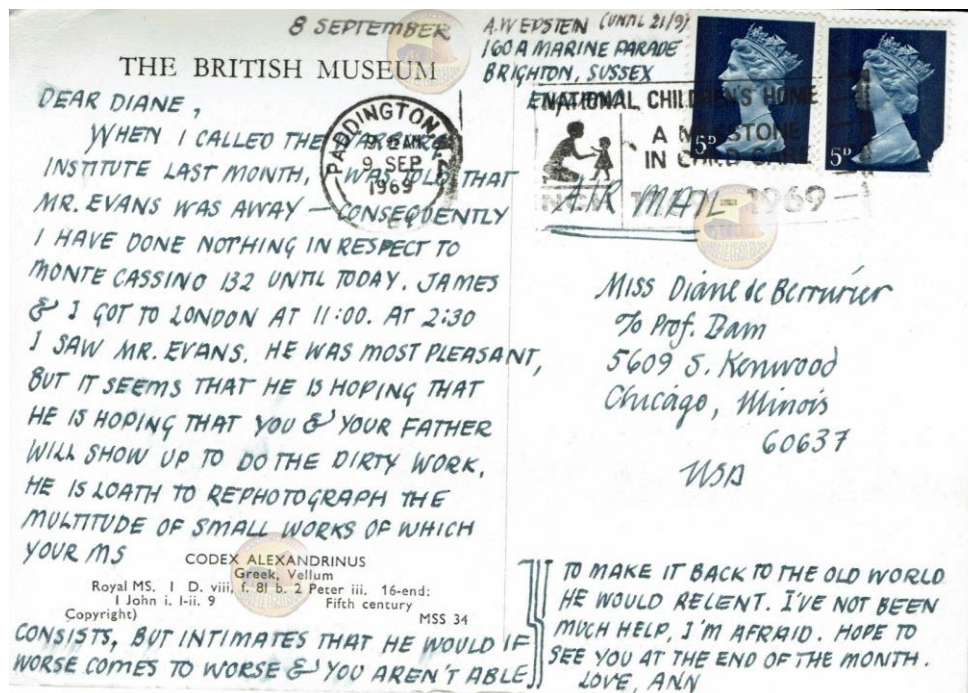 8 SEPTEMBER
A.W EPSTEIN (UNTIL 21/9)
160A MARINE PARADE
BRIGHTON, SUSSEX
ENGLAND
THE BRITISH MUSEUM
PADDINGTON
9 SEP
1969
NATIONAL CHILDREN'S HOME
A MILESTONE
IN CHILD CARE
N.C.H. 1969
5D
5D
AIR MAIL
DEAR DIANE,
WHEN I CALLED THE WARBURG
INSTITUTE LAST MONTH, I WAS TOLD THAT
MR. EVANS WAS AWAY — CONSEQUENTLY
I HAVE DONE NOTHING IN RESPECT TO
MONTE CASSINO 132 UNTIL TODAY. JAMES
& I GOT TO LONDON AT 11:00. AT 2:30
I SAW MR. EVANS. HE WAS MOST PLEASANT,
BUT IT SEEMS THAT HE IS HOPING THAT
HE IS HOPING THAT YOU & YOUR FATHER
WILL SHOW UP TO DO THE DIRTY WORK.
HE IS LOATH TO REPHOTOGRAPH THE
MULTITUDE OF SMALL WORKS OF WHICH
YOUR MS
CODEX ALEXANDRINUS
Greek, Vellum
Royal MS. I D. viii, f. 81 b. 2 Peter iii. 16-end:
I John i. I-ii. 9 Fifth century
Copyright) MSS 34
CONSISTS, BUT INTIMATES THAT HE WOULD IF
WORSE COMES TO WORSE & YOU AREN'T ABLE
TO MAKE IT BACK TO THE OLD WORLD
HE WOULD RELENT. I'VE NOT BEEN
MUCH HELP, I'M AFRAID. HOPE TO
SEE YOU AT THE END OF THE MONTH.
LOVE, ANN
Miss Diane de Berrurier
c/o Prof. Bam
5609 S. Kenwood
Chicago, Illinois
60637
USA